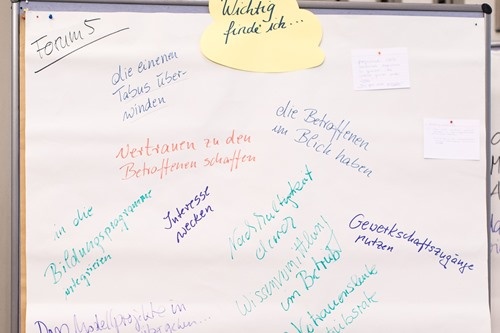 Forum 5
Wichtig
finde ich...
die einenen
Tabus über-
winden
die Betroffenen
im Blick haben
Vertrauen zu den
Betroffenen schaffen
in die
Bildungsprogramme
integrieren
Interesse
wecken
Nachhaltigkeit
Wissensvermittlung
im Betrieb
Gewerkschaftszugänge
nutzen
Dass Modellprojekte in